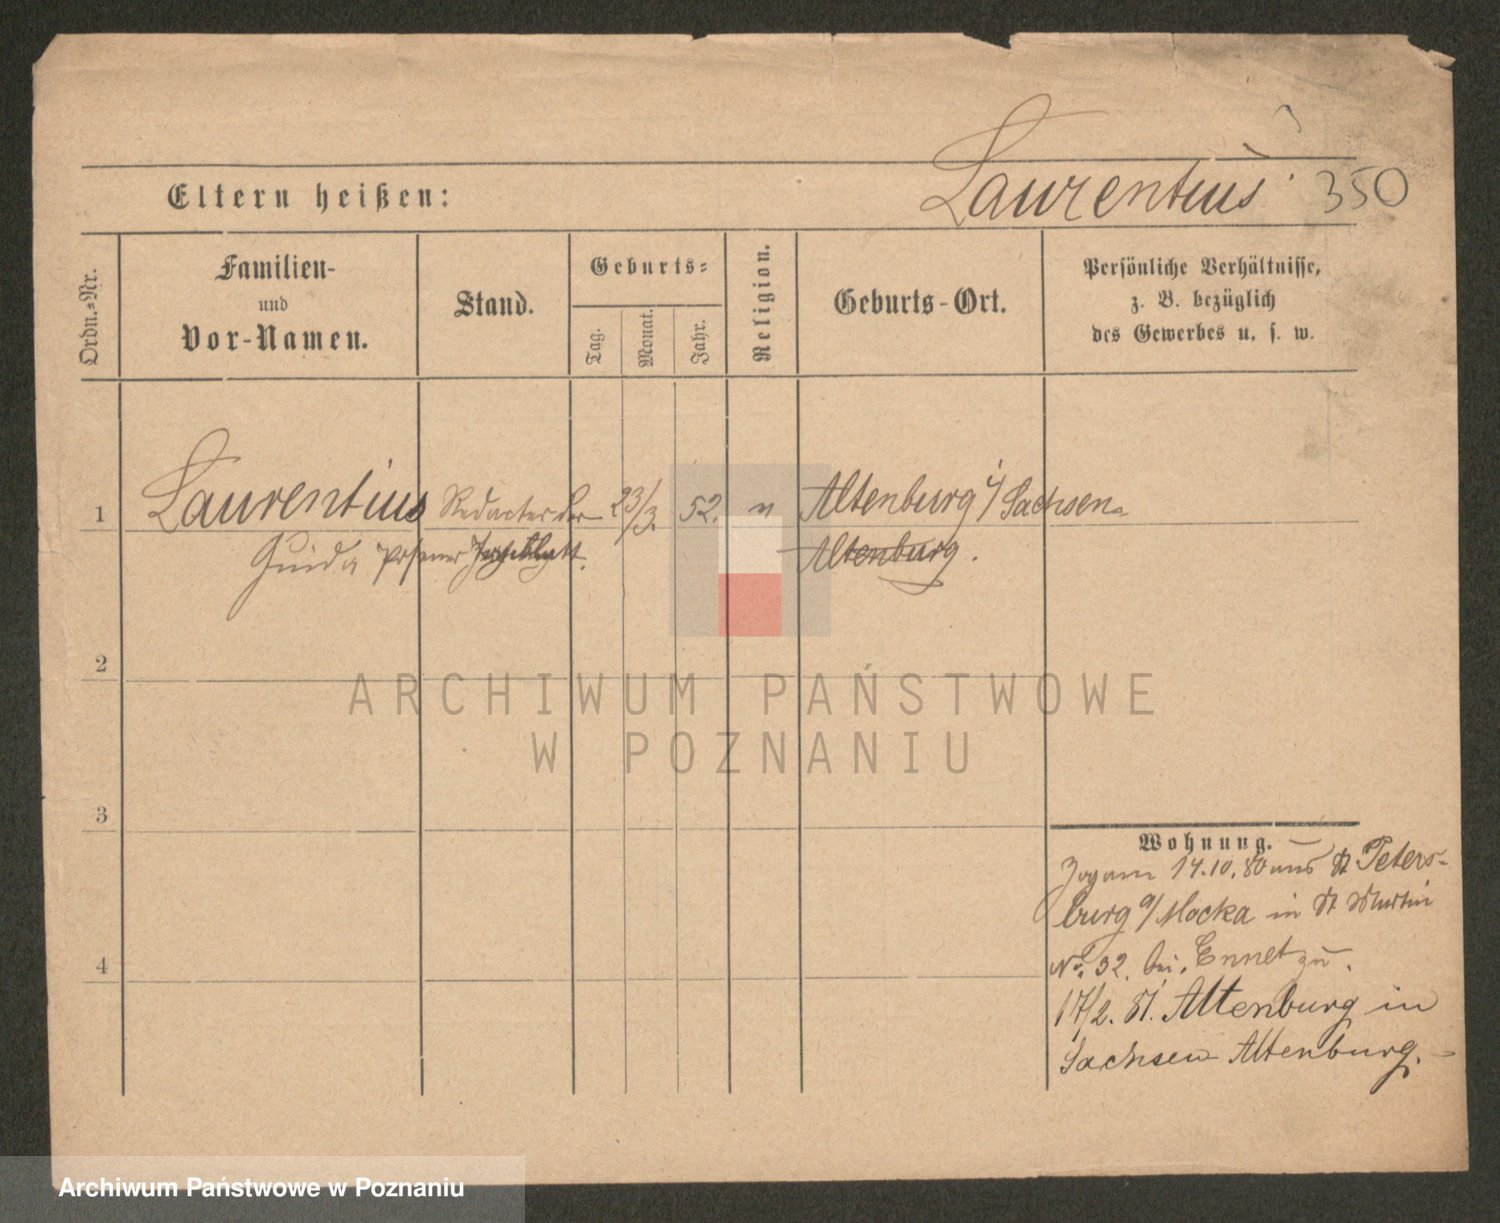 Laurentius 350
Eltern heißen:
Ordn.-Nr.
Familien-
und
Vor-Namen.
Stand.
Geburts-
Tag.
Monat.
Jahr.
Religion.
Geburts-Ort.
Persönliche Verhältnisse,
z. B. bezüglich
des Gewerbes u. s. w.
1 Laurentius Redacter der 23/3. 52. Altenburg i/ Sachsen-
Guido Posener Tageblatt. Altenburg.
2
3
4
Wohnung.
Zog am 14.10.80 aus St Peters-
burg a/ in St Martin
No. 32. bei. Ennet zu.
17/2. 81. Altenburg in
Sachsen Altenburg.
ARCHIWUM PAŃSTWOWE
W POZNANIU
Archiwum Państwowe w Poznaniu